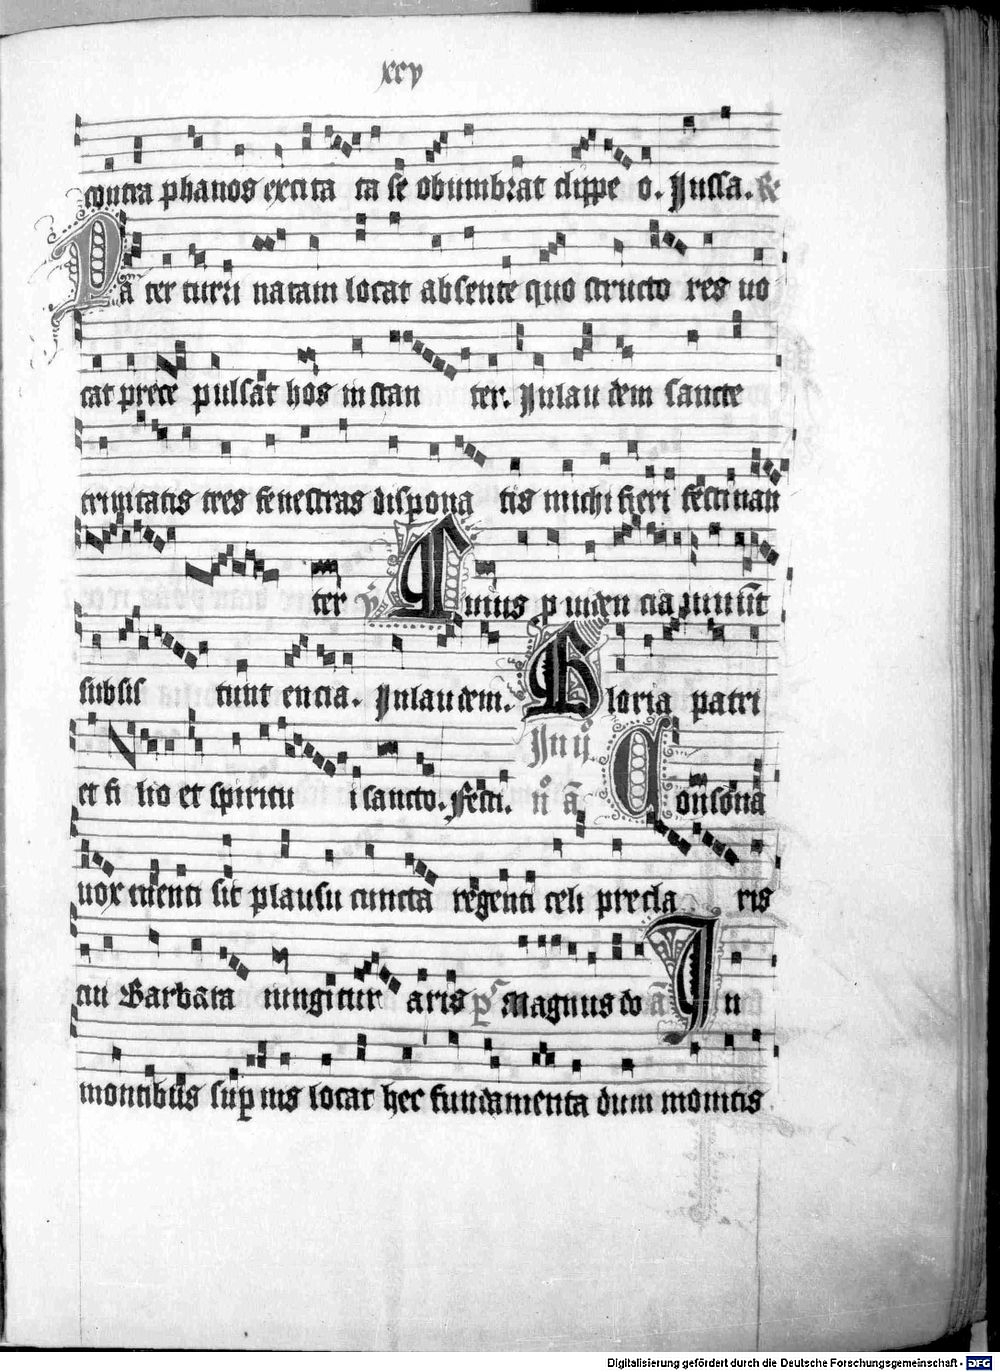 xcv
contra phanos excita ta se obumbrat clippe o. Jussa. R
Pa ter turri natam locat absente quo structo res uo
cat prece pulsat hos in stan ter. Jn lau dem sancte
trinitatis tres fenestras dispona tis michi fieri festinan
ter V Unius p uiden cia
subsis tunt encia. Jn lau dem. Gloria patri
et fi lio et spiritu i sancto. Festi. Jn ij. n a Consona
uox menti sit plausu cuncta regenti celi precla ris
cui Barbara iungitur aris ps Magnus do a Jn
montibus sup nis locat hec fundamenta dum monitis
Digitalisierung gefördert durch die Deutsche Forschungsgemeinschaft - DFG